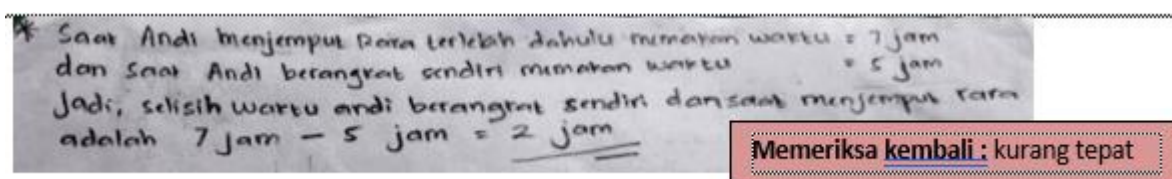 * Saat Andi menjemput Rara terlebih dahulu memakan waktu = 7 jam
dan saat Andi berangkat sendiri memakan waktu = 5 jam
Jadi, selisih waktu andi berangkat sendiri dan saat menjemput rara
adalah 7 jam - 5 jam = 2 jam
Memeriksa kembali : kurang tepat